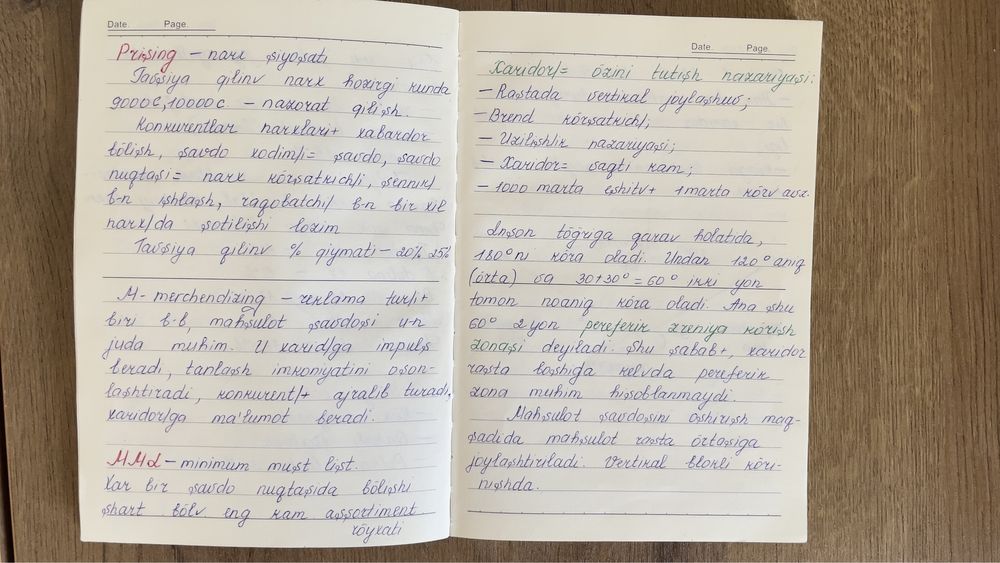 Date. Page.
Prising – narx siyosati
Tavsiya qilinv narx hozirgi kunda
9000c, 10000c. – nazorat qilish.
Konkurentlar narxlari+ xabardor
bölish, savdo xodim/i= savdo, savdo
nuqtasi= narx körsatkich/i, sennik/
b-n ishlash, raqobatchi/ b-n bir xil
narx/da sotilishi lozim
Tavsiya qilinv % qiymati – 20% 25%
M- merchendizing – reklama tur/i+
biri b-b, mahsulot savdosi u-n
juda muhim. U xarid/ga impuls
beradi, tanlash imkoniyatini oson-
lashtiradi, konkurent/+ ajralib turadi,
xaridor/ga ma'lumot beradi.
MML – minimum must list.
Xar bir savdo nuqtasida bölishi
shart bölv eng kam assortiment
röyxati
Date. Page.
Xaridor/= özini tutish nazariyasi:
– Rastada vertikal joylashuv;
– Brend körsatkich/i;
– Uzilishlik nazariyasi;
– Xaridor= vaqti kam;
– 1000 marta eshitv+ 1 marta körv avz.
Inson töğriga qarav holatida,
180° ni köra oladi. Undan 120° aniq
(örta) va 30+30° = 60° ikki yon
tomon noaniq köra oladi. Ana shu
60° 2 yon pereferik zreniya körish
zonasi deyiladi. Shu sabab+, xaridor
rasta boshiga kelvda pereferik
zona muhim hisoblanmaydi.
Mahsulot savdosini oshirish maq-
sadida mahsulot rasta örtasiga
joylashtiriladi. Vertikal blokli köri-
nishda.